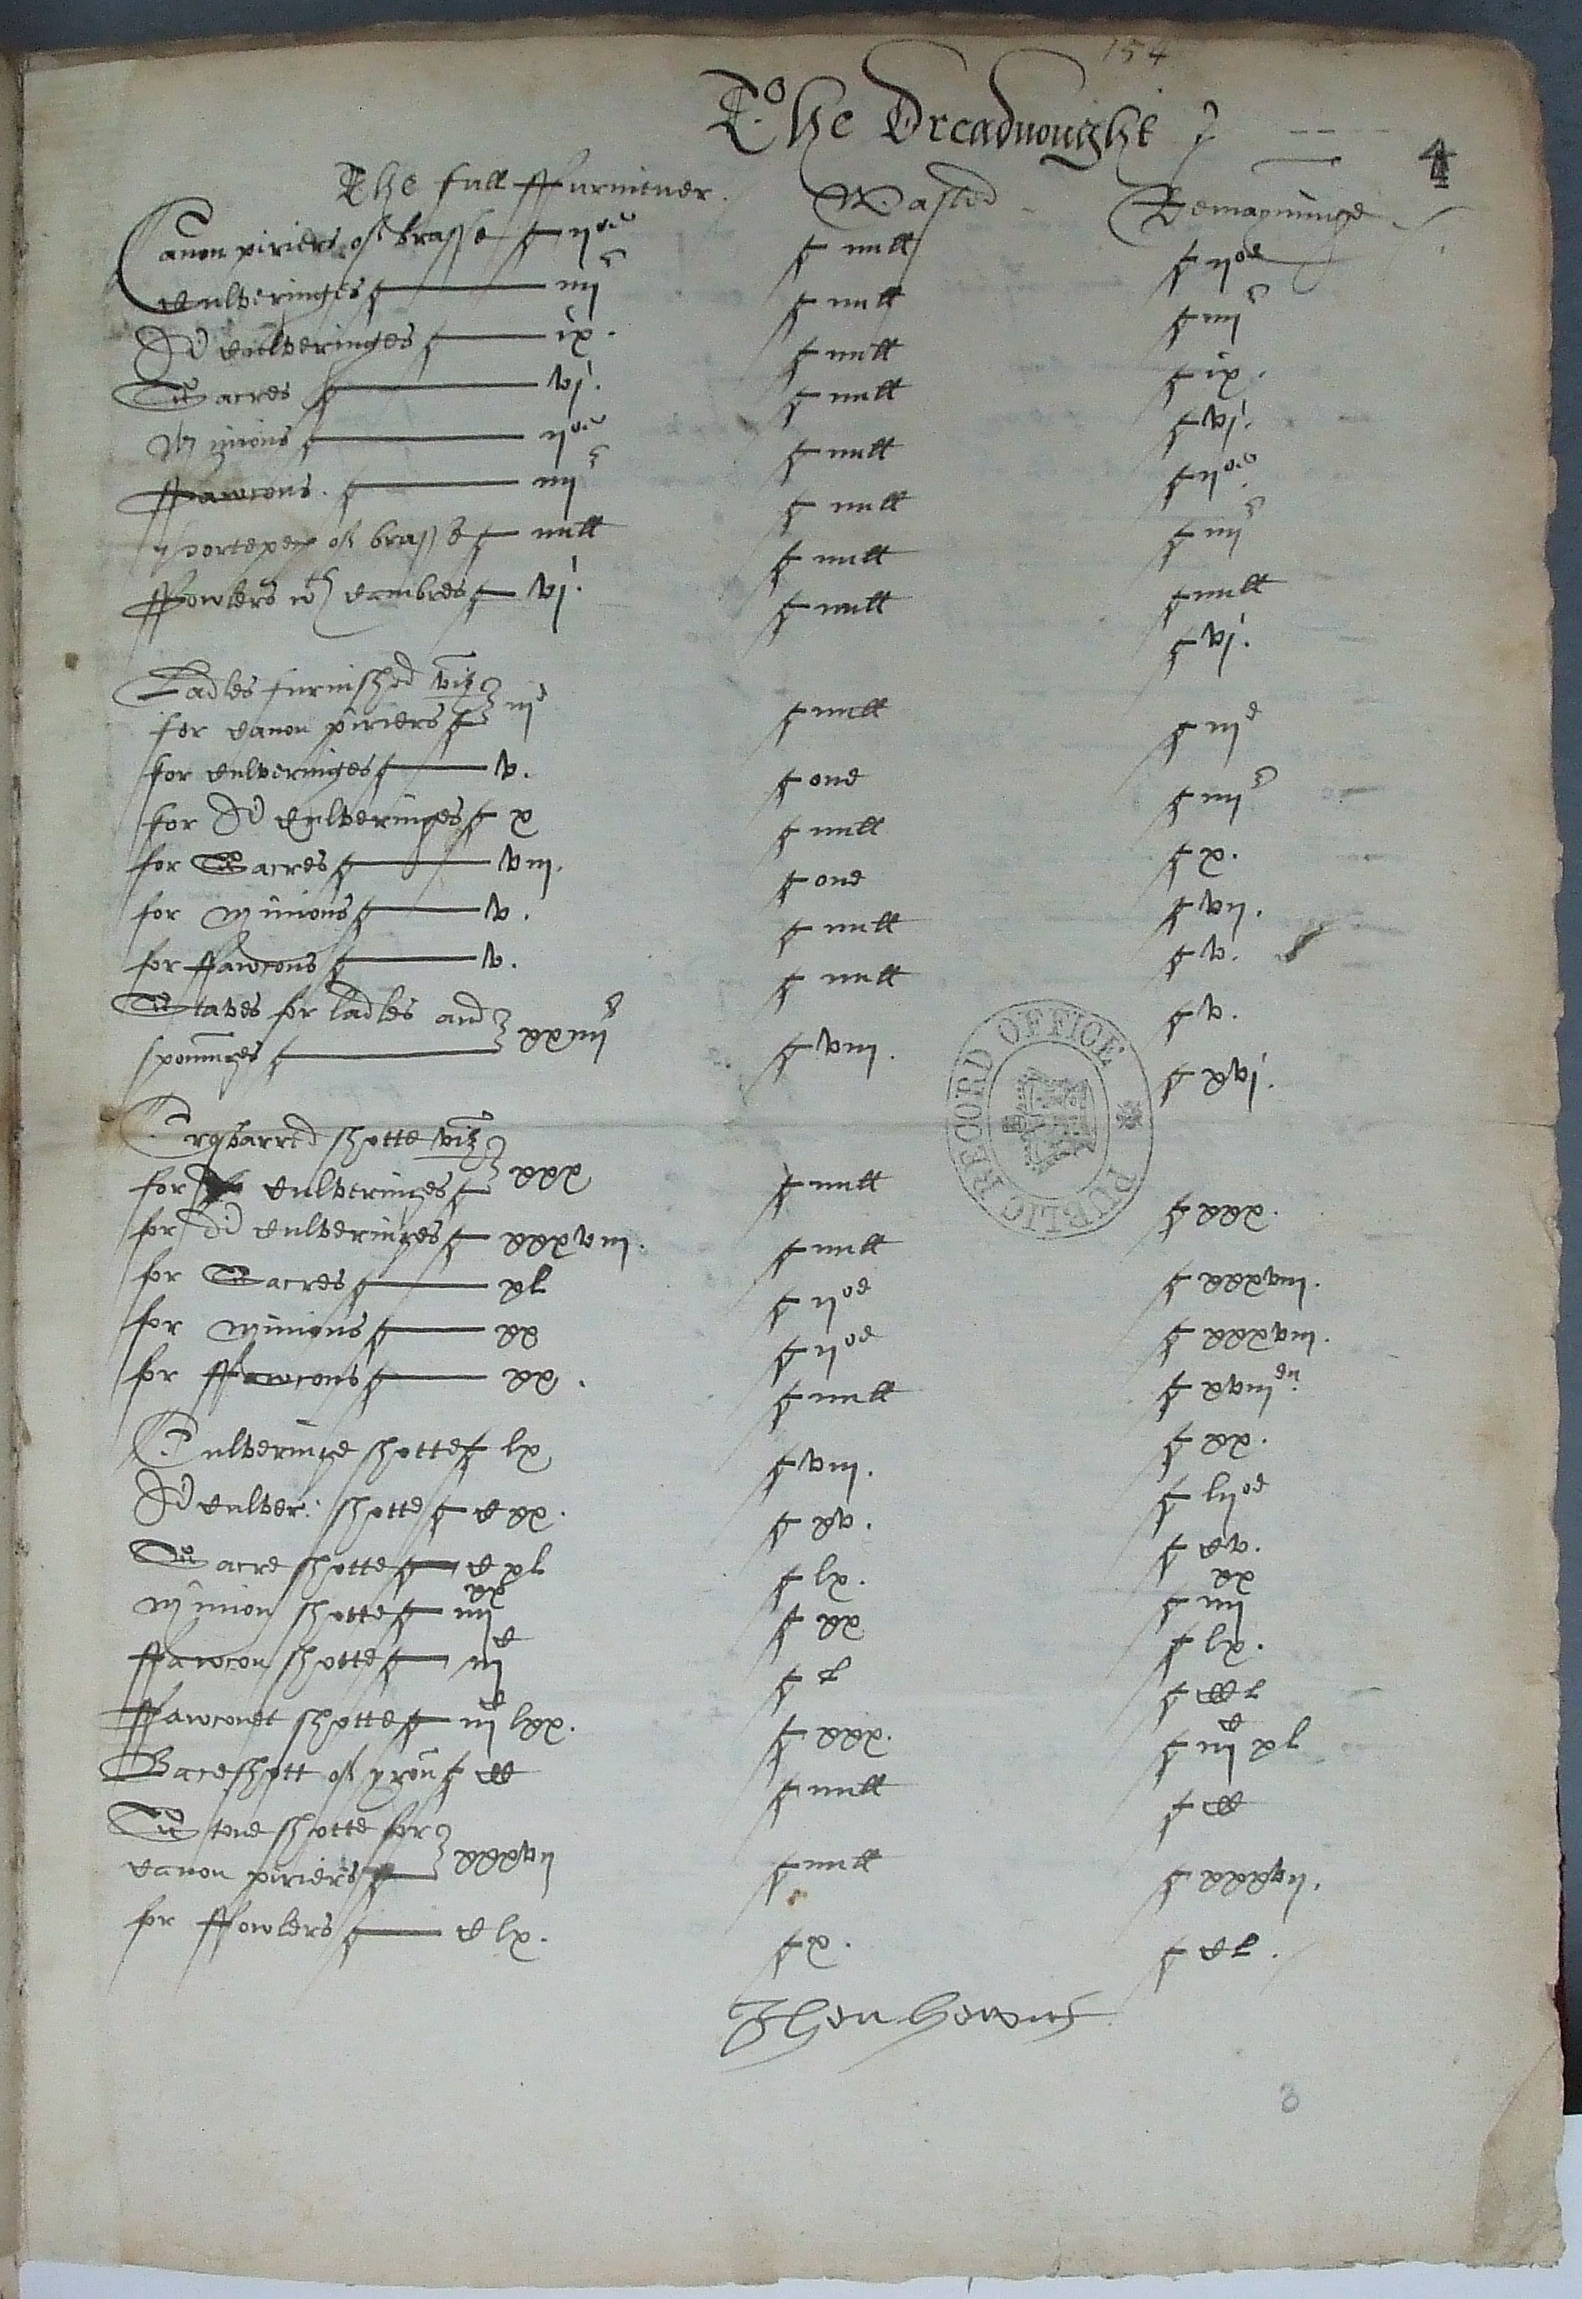 154
The Dreadnoughte
4
The full ffurnituer. Wasted Remayninge
Canon piriers of brasse — ijoe — null — ijoe
Culveringes — iiijr — null — iiijr
Di culveringes — ix. — null — ix.
Sacres — vj. — null — vj.
Mynions — ijoe — null — ijoe
ffawcons. — iiijr — null — iiijr
of brasse — null — null — null
ffowlers wth cambres — vj. — null — vj.
Ladles furnished viz
for canon piriers — iije — null — iije
for culveringes — v. — one — iiijr
for Di culveringes — x — null — x.
for Sacres — viij. — one — vij.
for mynions — v. — null — v.
for ffawcons — v. — null — v.
Staves for ladles and
sponnges — xxiiijr — viij. — xvj.
Crosbarred shotte viz
for culveringes — xxx — null — xxx.
for di culveringes — xxxviij. — null — xxxviij.
for Sacres — xl — ijoe — xxxviij.
for mynions — xx — ijoe — xviijen
for ffawcons — xx. — null — xx.
Culveringe shotte — lx — viij. — lijoe
Di culver: shotte — cxx. — xv. — cv.
Sacre shotte — cxl — lx. — iiijxx
mynion shotte — iiijxx — xx — lx.
ffawcon shotte — iijc — l — ccl
ffawconet shotte — iijc lxx. — xxx. — iijc xl
Baceshott of yron — cc — null — cc
Stone shotte for
canon piriers — xxxvij — null — xxxvij.
for ffowlers — clx. — x. — cl.
PUBLIC RECORD OFFICE
3